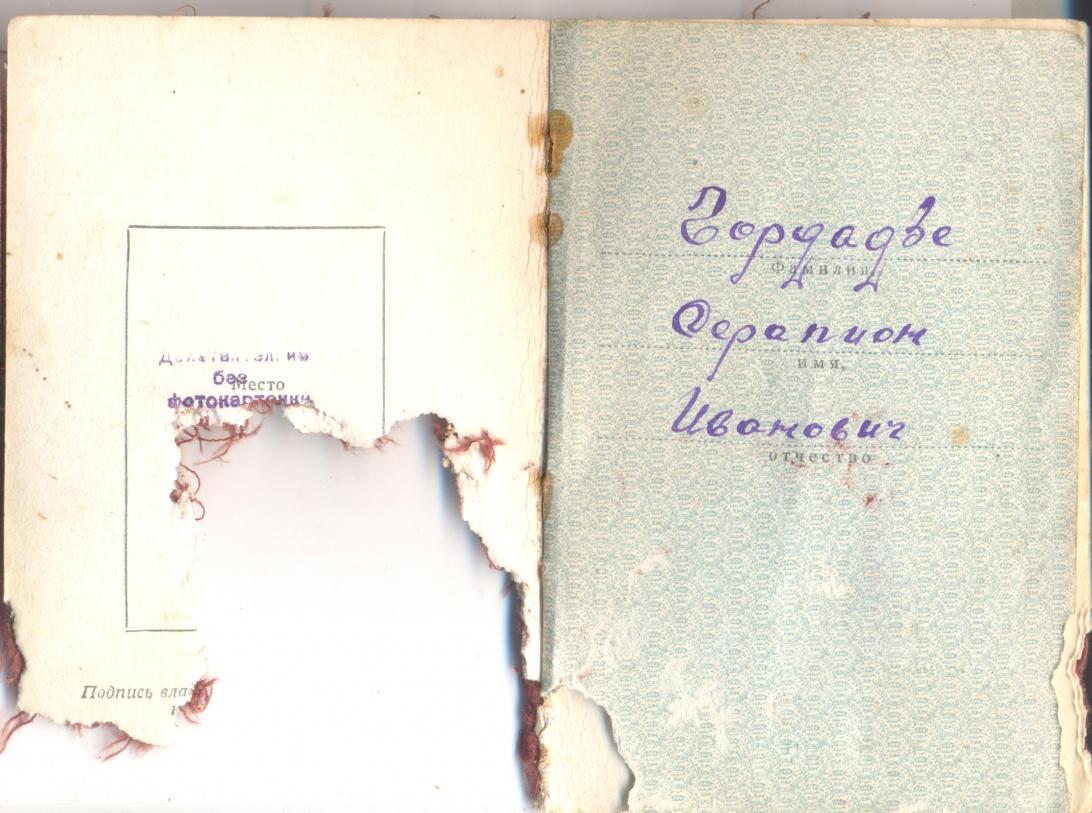 Действительно
без
Место
фотокарточки
Подпись влад
Гордадзе
фамилия
Серапион
имя,
Иванович
отчество